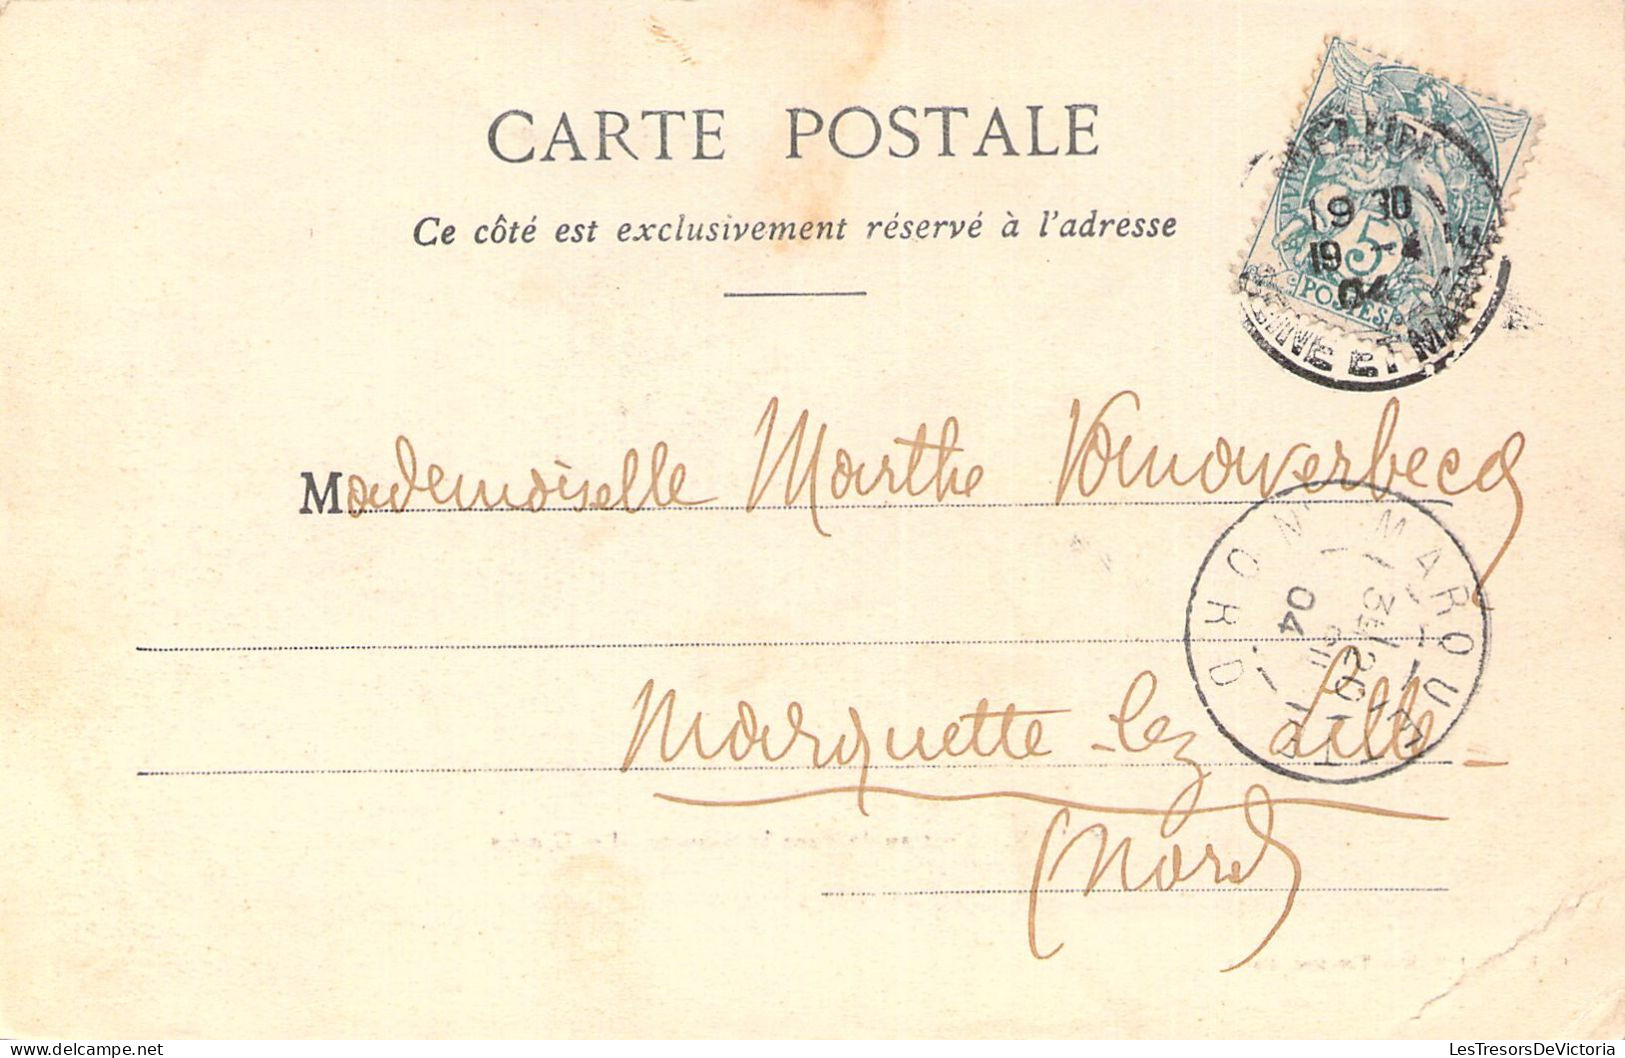 CARTE POSTALE
Ce côté est exclusivement réservé à l'adresse
MELUN
19 30
19 -4
04
SEINE ET MARNE
5
POSTES
Mademoiselle Marthe
MARQUETTE
NORD
04
Marquette-lez Lille
(Nord)
LesTresorsDeVictoria.com